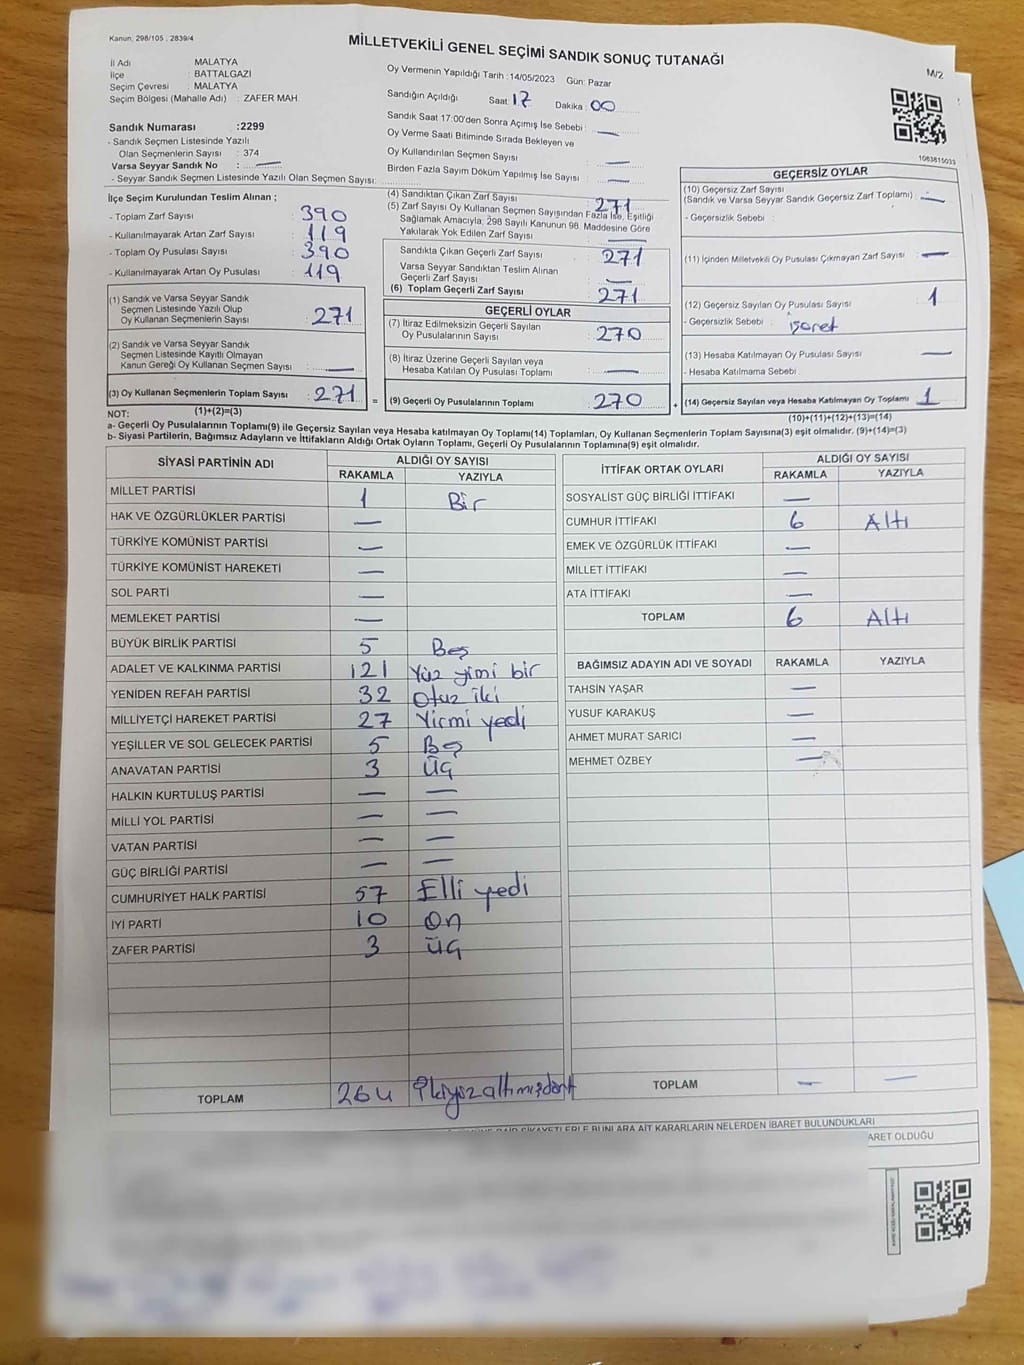 Kanun, 298/105 , 2839/4
MİLLETVEKİLİ GENEL SEÇİMİ SANDIK SONUÇ TUTANAĞI
M/2
İl Adı : MALATYA
İlçe : BATTALGAZİ
Seçim Çevresi : MALATYA
Seçim Bölgesi (Mahalle Adı) : ZAFER MAH.
Sandık Numarası :2299
- Sandık Seçmen Listesinde Yazılı
Olan Seçmenlerin Sayısı : 374
Varsa Seyyar Sandık No : —
- Seyyar Sandık Seçmen Listesinde Yazılı Olan Seçmen Sayısı:
Oy Vermenin Yapıldığı Tarih :14/05/2023 Gün: Pazar
Sandığın Açıldığı Saat 17 Dakika : 00
Sandık Saat 17:00'den Sonra Açımış İse Sebebi : —
Oy Verme Saati Bitiminde Sırada Bekleyen ve
Oy Kullandırılan Seçmen Sayısı : —
Birden Fazla Sayım Döküm Yapılmış İse Sayısı : —
1063815033
İlçe Seçim Kurulundan Teslim Alınan ;
- Toplam Zarf Sayısı : 390
- Kullanılmayarak Artan Zarf Sayısı : 119
- Toplam Oy Pusulası Sayısı : 390
- Kullanılmayarak Artan Oy Pusulası : 119
(1) Sandık ve Varsa Seyyar Sandık
Seçmen Listesinde Yazılı Olup
Oy Kullanan Seçmenlerin Sayısı : 271
(2) Sandık ve Varsa Seyyar Sandık
Seçmen Listesinde Kayıtlı Olmayan
Kanun Gereği Oy Kullanan Seçmen Sayısı : —
(3) Oy Kullanan Seçmenlerin Toplam Sayısı : 271
(1)+(2)=(3)
(4) Sandıktan Çıkan Zarf Sayısı : 271
(5) Zarf Sayısı Oy Kullanan Seçmen Sayısından Fazla İse, Eşitliği
Sağlamak Amacıyla, 298 Sayılı Kanunun 98. Maddesine Göre
Yakılarak Yok Edilen Zarf Sayısı : —
Sandıkta Çıkan Geçerli Zarf Sayısı : 271
Varsa Seyyar Sandıktan Teslim Alınan
Geçerli Zarf Sayısı : —
(6) Toplam Geçerli Zarf Sayısı : 271
GEÇERLİ OYLAR
(7) İtiraz Edilmeksizin Geçerli Sayılan
Oy Pusulalarının Sayısı : 270
(8) İtiraz Üzerine Geçerli Sayılan veya
Hesaba Katılan Oy Pusulası Toplamı : —
= (9) Geçerli Oy Pusulalarının Toplamı : 270 +
GEÇERSİZ OYLAR
(10) Geçersiz Zarf Sayısı
(Sandık ve Varsa Seyyar Sandık Geçersiz Zarf Toplamı) : —
- Geçersizlik Sebebi :
(11) İçinden Milletvekili Oy Pusulası Çıkmayan Zarf Sayısı : —
(12) Geçersiz Sayılan Oy Pusulası Sayısı : 1
- Geçersizlik Sebebi : işaret
(13) Hesaba Katılmayan Oy Pusulası Sayısı : —
- Hesaba Katılmama Sebebi :
(14) Geçersiz Sayılan veya Hesaba Katılmayan Oy Toplamı : 1
(10)+(11)+(12)+(13)=(14)
NOT:
a- Geçerli Oy Pusulalarının Toplamı(9) ile Geçersiz Sayılan veya Hesaba katılmayan Oy Toplamı(14) Toplamları, Oy Kullanan Seçmenlerin Toplam Sayısına(3) eşit olmalıdır. (9)+(14)=(3)
b- Siyasi Partilerin, Bağımsız Adayların ve İttifakların Aldığı Ortak Oyların Toplamı, Geçerli Oy Pusulalarının Toplamına(9) eşit olmalıdır.
SİYASİ PARTİNİN ADI ALDIĞI OY SAYISI
RAKAMLA YAZIYLA
MİLLET PARTİSİ 1 Bir
HAK VE ÖZGÜRLÜKLER PARTİSİ —
TÜRKİYE KOMÜNİST PARTİSİ —
TÜRKİYE KOMÜNİST HAREKETİ —
SOL PARTİ —
MEMLEKET PARTİSİ —
BÜYÜK BİRLİK PARTİSİ 5 Beş
ADALET VE KALKINMA PARTİSİ 121 Yüz yimi bir
YENİDEN REFAH PARTİSİ 32 Otuz iki
MİLLİYETÇİ HAREKET PARTİSİ 27 Yirmi yedi
YEŞİLLER VE SOL GELECEK PARTİSİ 5 Beş
ANAVATAN PARTİSİ 3 Üç
HALKIN KURTULUŞ PARTİSİ — —
MİLLİ YOL PARTİSİ — —
VATAN PARTİSİ — —
GÜÇ BİRLİĞİ PARTİSİ — —
CUMHURİYET HALK PARTİSİ 57 Elli yedi
İYİ PARTİ 10 On
ZAFER PARTİSİ 3 Üç
TOPLAM 264 İkiyüzaltmışdört
İTTİFAK ORTAK OYLARI ALDIĞI OY SAYISI
RAKAMLA YAZIYLA
SOSYALİST GÜÇ BİRLİĞİ İTTİFAKI —
CUMHUR İTTİFAKI 6 Altı
EMEK VE ÖZGÜRLÜK İTTİFAKI —
MİLLET İTTİFAKI —
ATA İTTİFAKI —
TOPLAM 6 Altı
BAĞIMSIZ ADAYIN ADI VE SOYADI RAKAMLA YAZIYLA
TAHSİN YAŞAR —
YUSUF KARAKUŞ —
AHMET MURAT SARICI —
MEHMET ÖZBEY —
TOPLAM — —
ŞİKAYETLERLE BUNLARA AİT KARARLARIN NELERDEN İBARET BULUNDUKLARI
ARET OLDUĞU